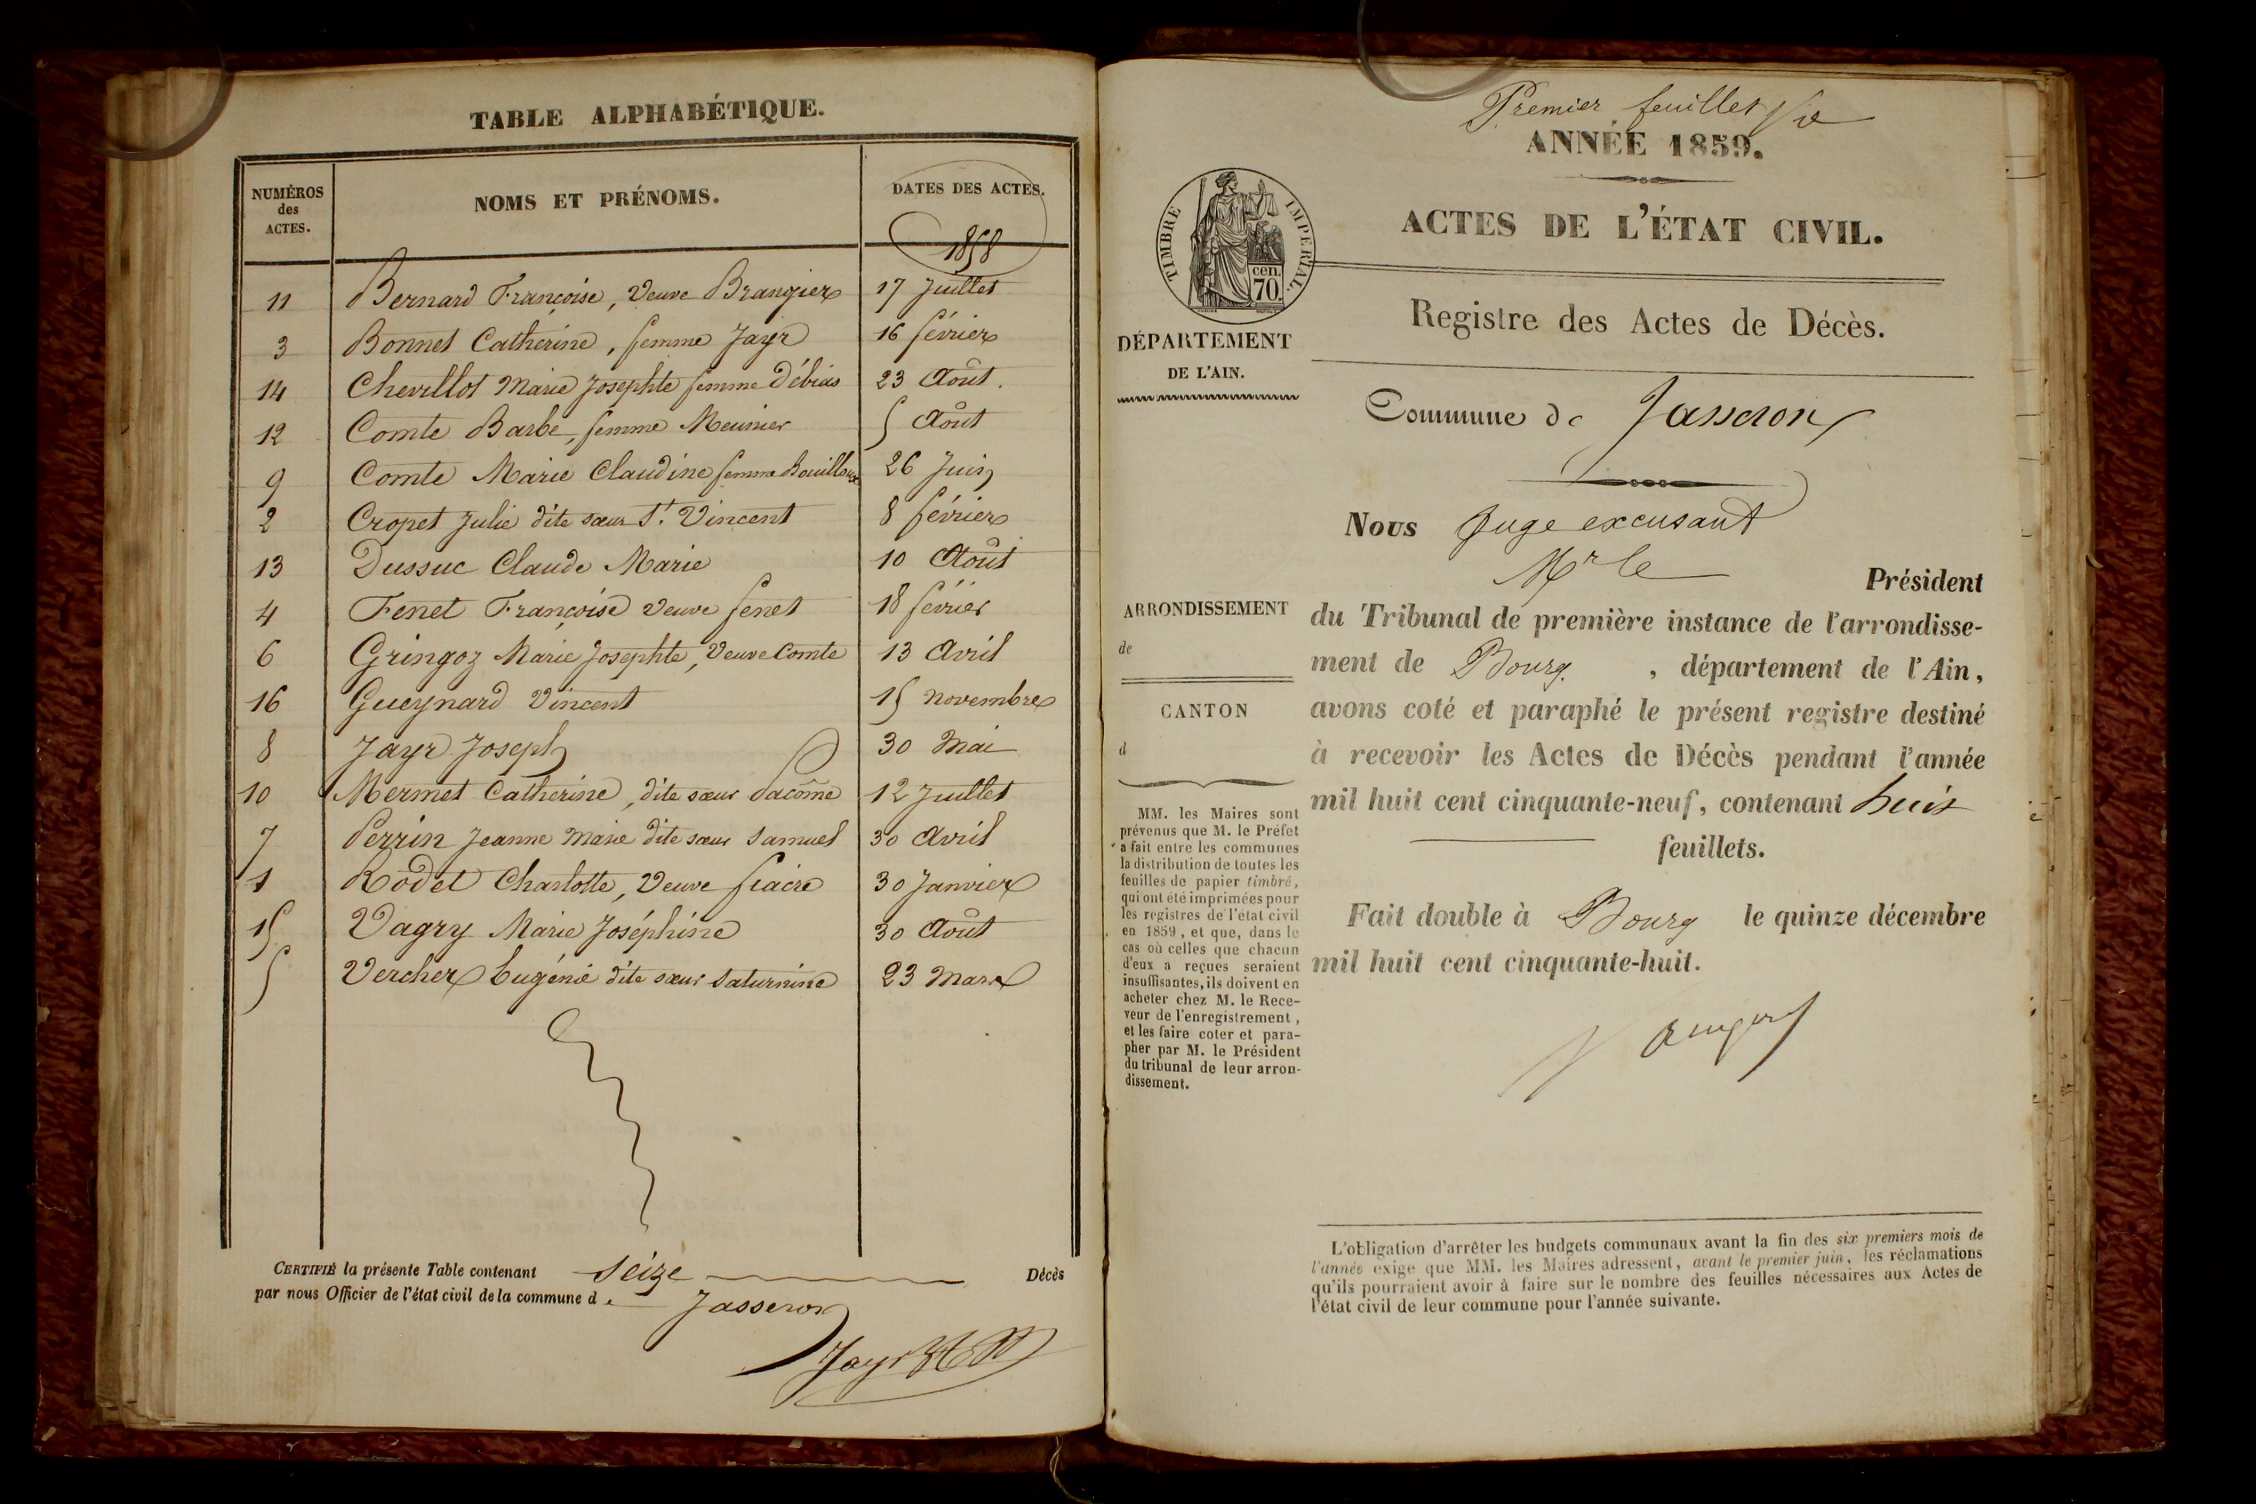 TABLE ALPHABÉTIQUE.
NUMÉROS des ACTES.
NOMS ET PRÉNOMS.
DATES DES ACTES.
1858
11 Bernard Françoise, Veuve Brangier 17 Juillet
3 Bonnet Catherine, femme Jayr 16 février
14 Chevillot Marie Josephte femme Débias 23 Août.
12 Comte Barbe, femme Meunier 5 Août
9 Comte Marie Claudine femme Bouilloux 26 Juin
2 Cropet Julie dite sœur St. Vincent 8 février
13 Dussuc Claude Marie 10 Août
4 Fenet Françoise veuve fenet 18 février
6 Gringoz Marie Josephte, Veuve Comte 13 Avril
16 Gueynard Vincent 15 novembre
8 Jayr Joseph 30 Mai
10 Mermet Catherine, dite sœur Pacôme 12 Juillet
7 Perrin Jeanne Marie dite sœur Samuel 30 Avril
1 Rodet Charlotte, Veuve fiacre 30 Janvier
15 Vagry Marie Joséphine 30 Août
5 Vercher Eugénie dite sœur Saturnine 23 Mars
CERTIFIÉ la présente Table contenant seize Décès
par nous Officier de l'état civil de la commune de Jasseron
Jayr
Premier feuillet
ANNÉE 1859.
ACTES DE L'ÉTAT CIVIL.
TIMBRE IMPÉRIAL.
cen.
70.
Registre des Actes de Décès.
DÉPARTEMENT
DE L'AIN.
Commune de Jasseron
Nous Juge excusant
Mr le Président
du Tribunal de première instance de l'arrondisse-
ment de Bourg. , département de l'Ain,
avons coté et paraphé le présent registre destiné
à recevoir les Actes de Décès pendant l'année
mil huit cent cinquante-neuf, contenant huit
feuillets.
Fait double à Bourg le quinze décembre
mil huit cent cinquante-huit.
ARRONDISSEMENT
de
CANTON
d
MM. les Maires sont
prévenus que M. le Préfet
a fait entre les communes
la distribution de toutes les
feuilles de papier timbré,
qui ont été imprimées pour
les registres de l'état civil
en 1859, et que, dans le
cas où celles que chacun
d'eux a reçues seraient
insuffisantes, ils doivent en
acheter chez M. le Rece-
veur de l'enregistrement,
et les faire coter et para-
pher par M. le Président
du tribunal de leur arron-
dissement.
L'obligation d'arrêter les budgets communaux avant la fin des six premiers mois de
l'année exige que MM. les Maires adressent, avant le premier juin, les réclamations
qu'ils pourraient avoir à faire sur le nombre des feuilles nécessaires aux Actes de
l'état civil de leur commune pour l'année suivante.